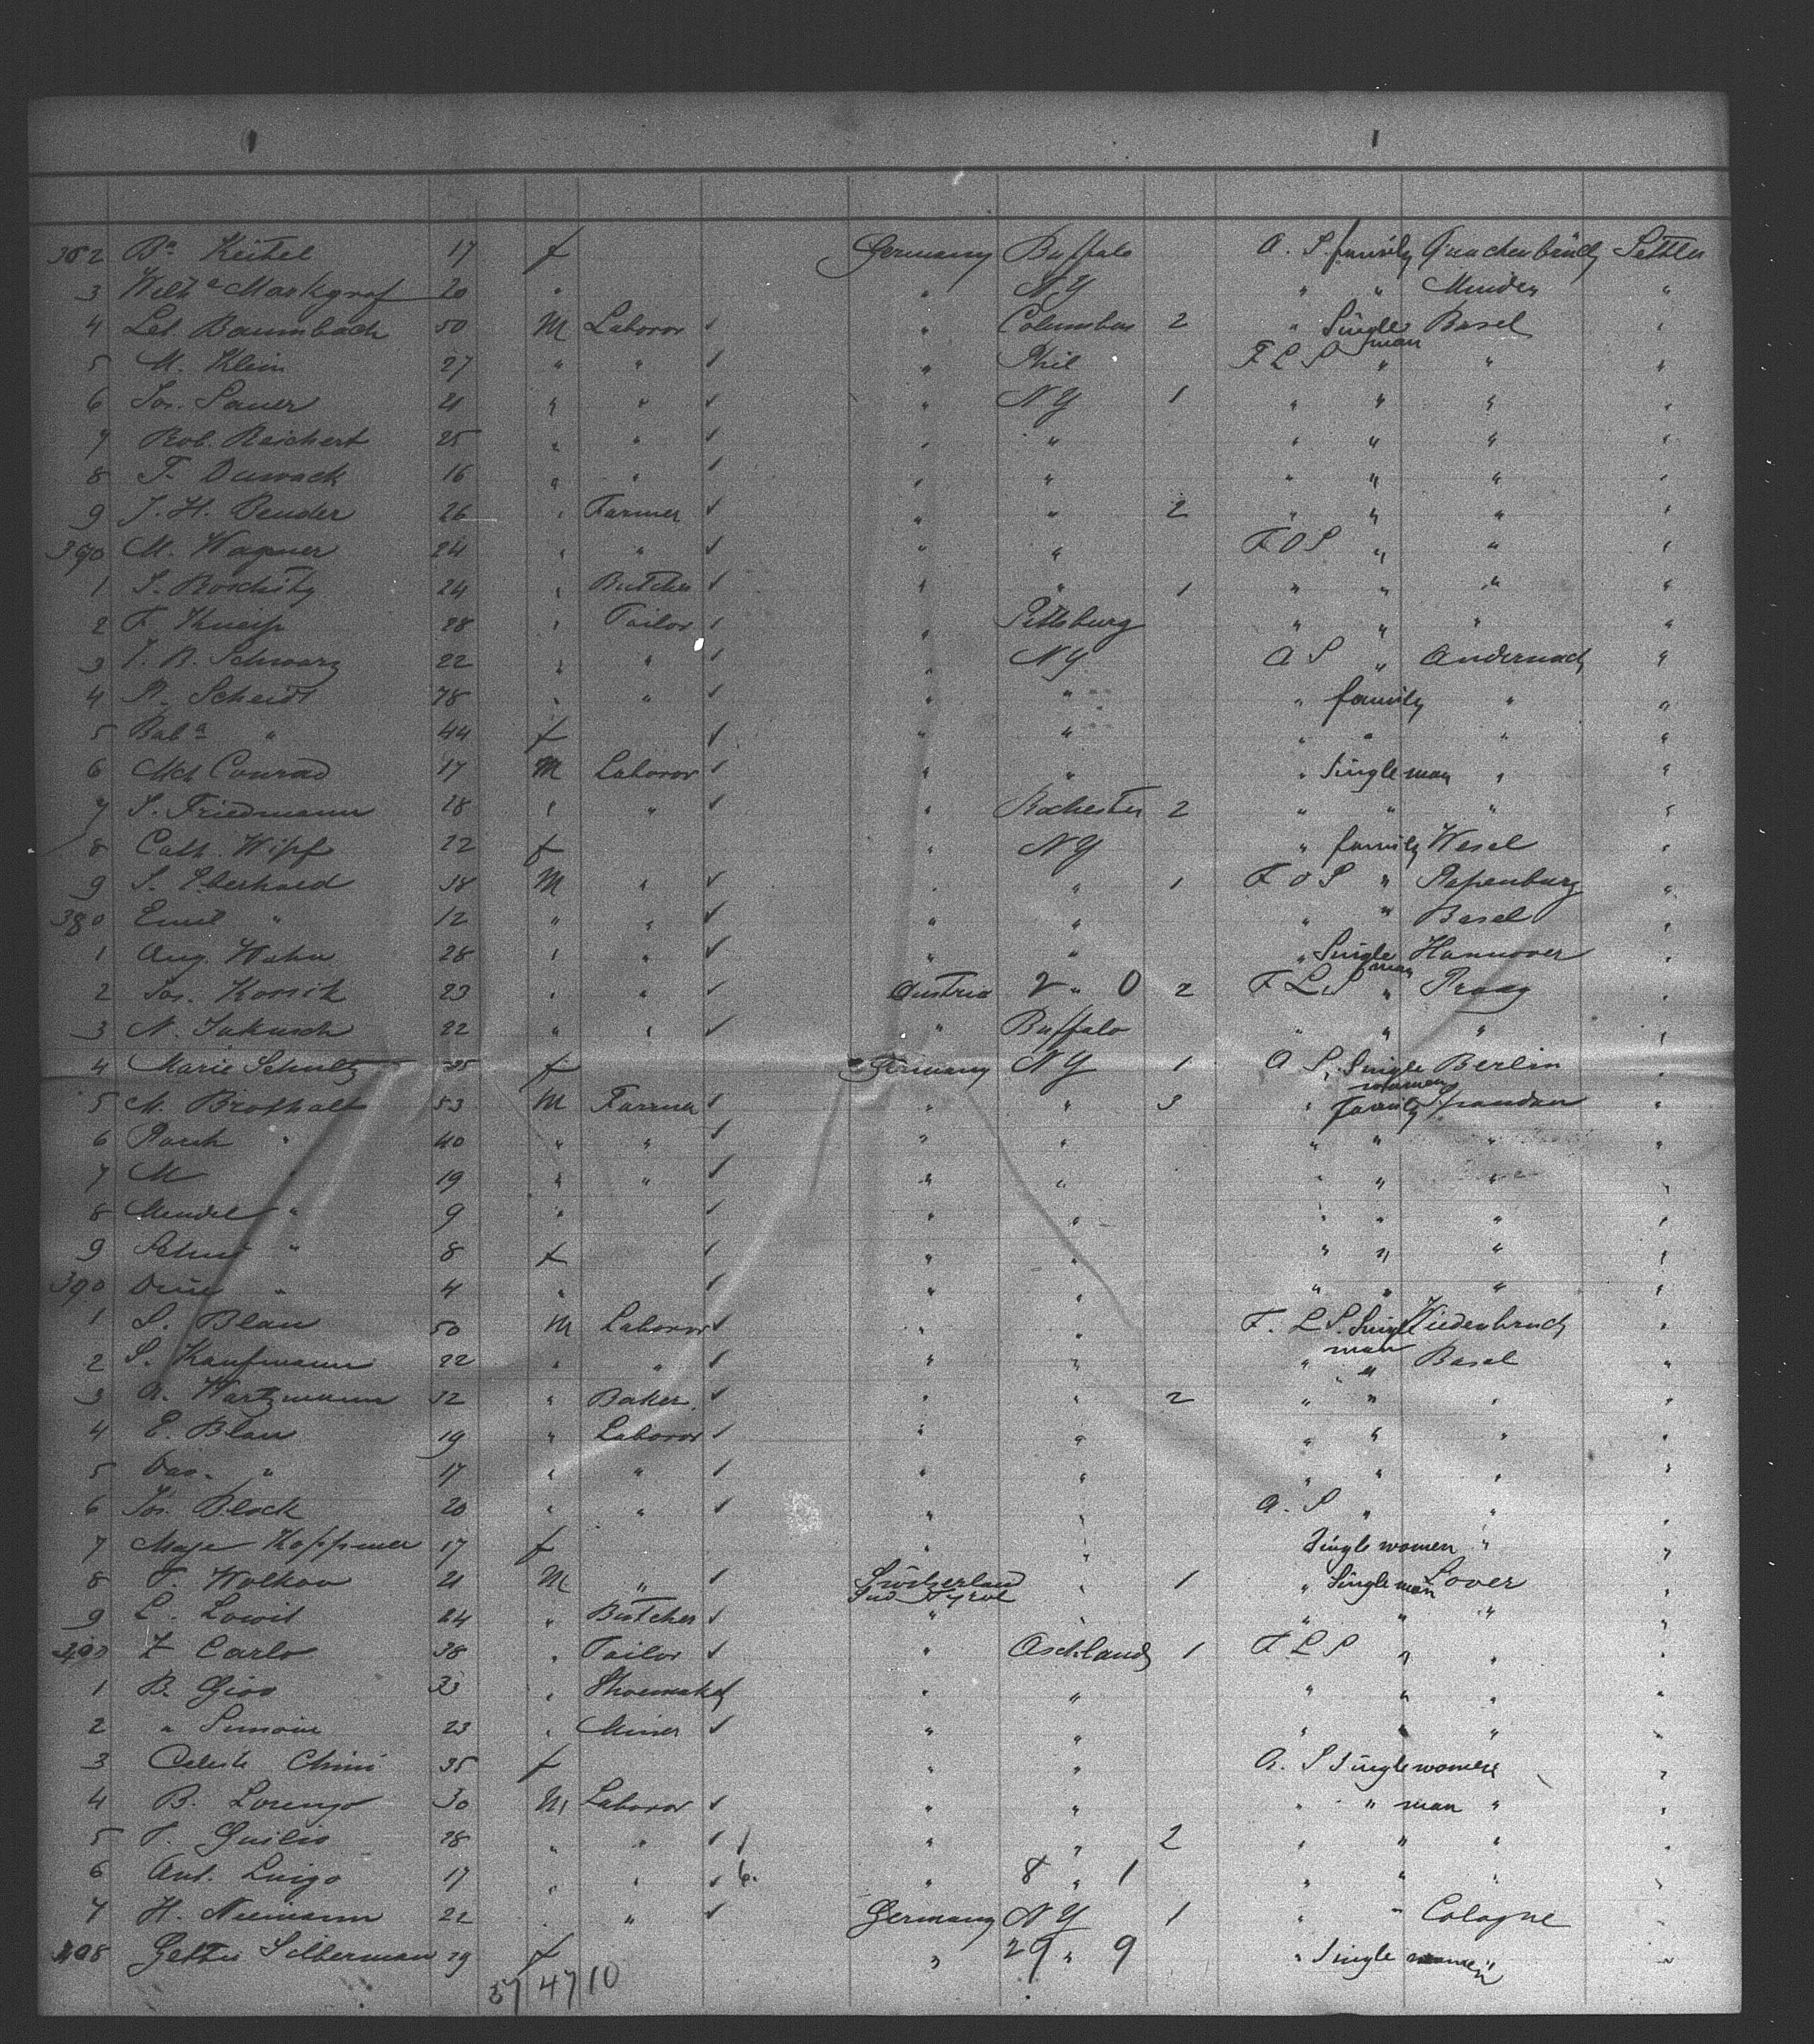 362 Ba Keitel 17 f Germany Buffalo A. S. family Settler
3 Wilh a Markgraf 20 " " NY " " Minden "
4 Baumbach 50 M Laboror ✓ " Columbus 2 " Single man Basel "
5 M. Klein 27 " " ✓ " Phil F L S " " "
6 Jos. Sauer 21 " " ✓ " NY 1 " " " "
7 Rob. Reichert 25 " " ✓ " " " " " "
8 T. 16 " " ✓ " " " " " "
9 J. H. Bender 26 " Farmer ✓ " " 2 " " " "
390 M. Wagner 24 " " ✓ " " F O S " " "
1 S. 24 " Butcher ✓ " " 1 " " " "
2 F. Kneip 28 " Tailor ✓ " Pittsburg " " " "
3 J. B. Schwarz 22 " " ✓ " NY A S " Andernach "
4 Scheidt 78 " " ✓ " " " family " "
5 Bab a " 44 f ✓ " " " " " "
6 Mch Conrad 17 M Laboror ✓ " " " Single man " "
7 S. Friedmann 28 " " ✓ " Rochester 2 " " " "
8 Cath. Wipf 22 f " NY " family Wesel "
9 S. Eberhard 38 M " ✓ " " 1 F O S " Papenburg "
380 Emil " 12 " " ✓ " " " " Basel "
1 Aug. Hahn 28 " " ✓ " " " Single man Hannover "
2 Jos. Korsik 23 " " ✓ Austria 2 " 0 2 F L S " Praag "
3 N. 22 " " ✓ " Buffalo " " " "
4 Marie Schultz 35 f Germany NY 1 A S. Single women Berlin "
5 M. Brothalt 53 M Farmer ✓ " " 3 " family Spandau "
6 " 40 " " ✓ " " " " " "
7 M " 19 " " ✓ " " " " " "
8 Mendel " 9 " ✓ " " " " " "
9 " 8 f ✓ " " " " " "
390 " 4 " ✓ " " " " " "
1 S. Blau 50 M Laboror ✓ " " F. L S. Single man Wiedenbruch "
2 S. Kaufmann 22 " " ✓ " " " " Basel "
3 Wartzmann 32 " Baker ✓ " " 2 " " " "
4 E. Blau 19 " Laboror ✓ " " " " " "
5 " 17 " " ✓ " " " " " "
6 Jos. Block 20 " " ✓ " " A. S " " "
7 Koppmer 17 f " " Single women " "
8 T. Wolkov 21 M " ✓ Switzerland Sud Tyrol " 1 " Single man "
9 L. Lowit 24 " Butcher ✓ " " " " " "
400 Z Carlo 38 " Tailor ✓ " Aschland 1 F L S " " "
1 B. Gios 33 " Shoemaker " " " " " "
2 " Simoni 23 " Miner ✓ " " " " " "
3 Chini 35 f " " A. S Single women "
4 B. Lorenzo 30 M Laboror ✓ " " " " man " "
5 T. Guilio 28 " " ✓ 1 " " 2 " " " "
6 Ant. Luigo 17 " " ✓ 6. " 8 " 1 " " " "
7 H. Niemann 22 " " ✓ Germany NY 1 " " Cologne "
408 Silberman 19 f " 29 " 9 " Single women " "
57 47 10